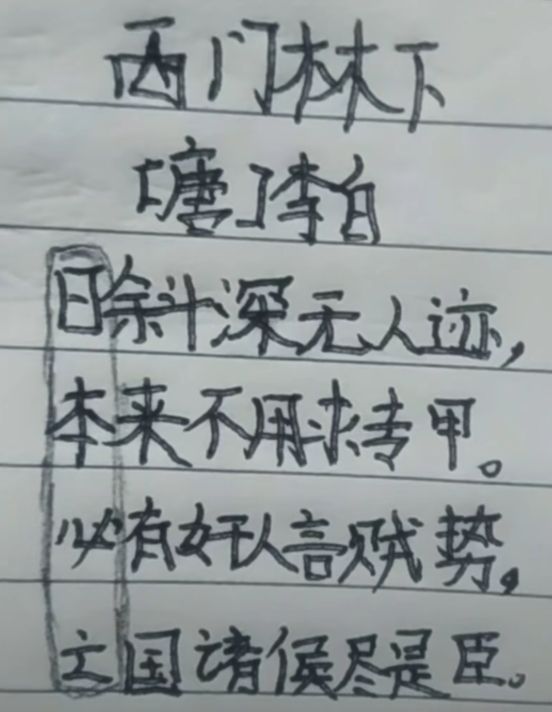 西门林下
[唐]李白
日斜深无人迹，
本来不用求专甲。
必有奸人言贼势，
亡国诸侯尽是臣。